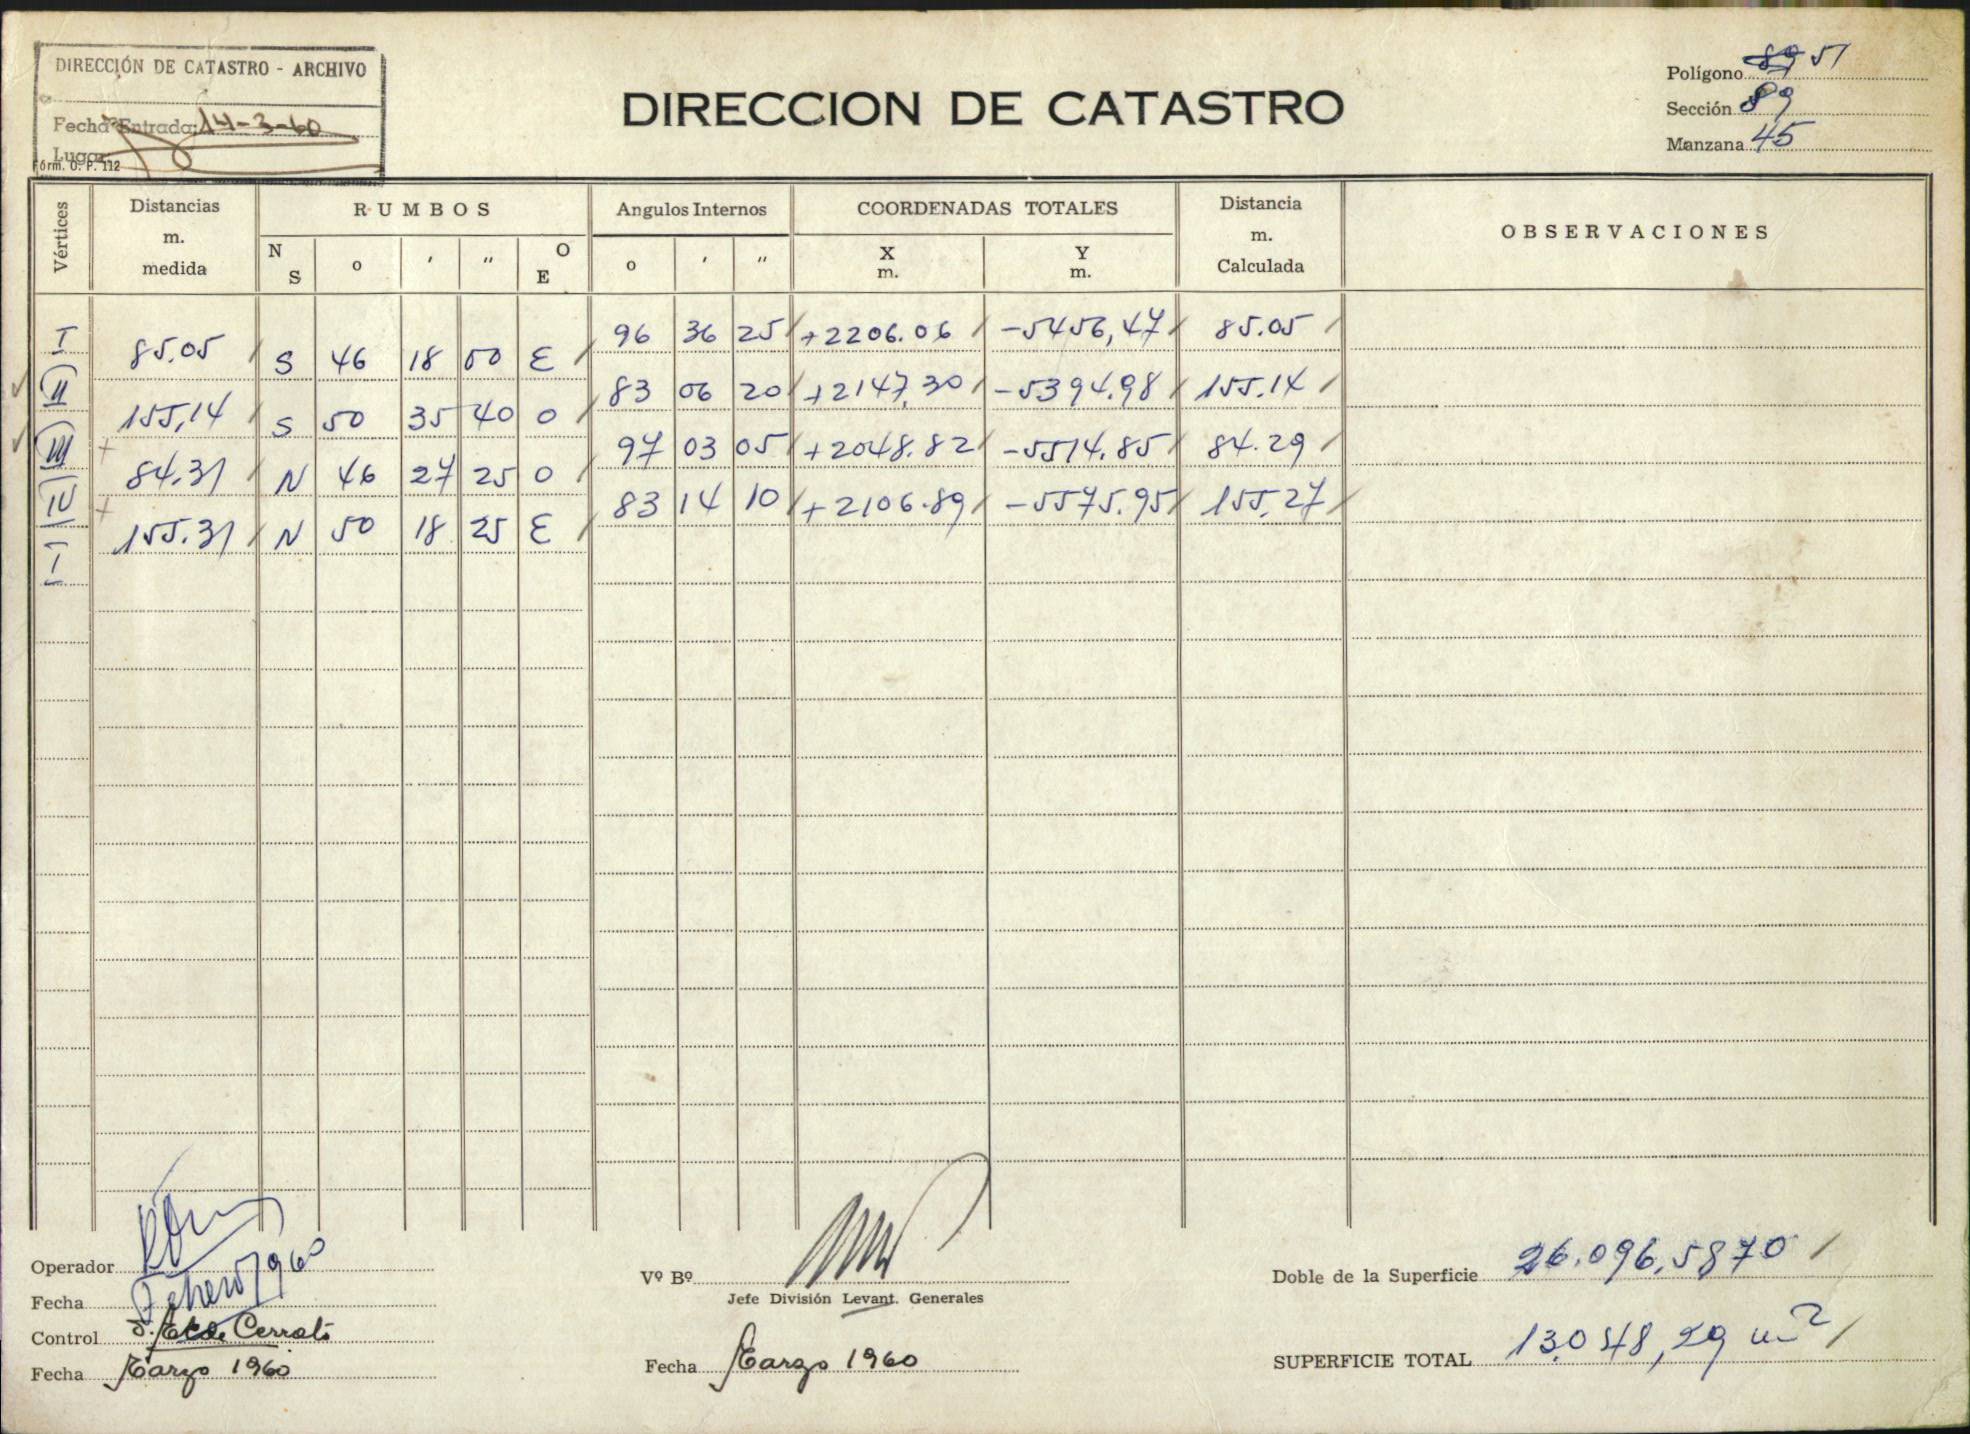 DIRECCIÓN DE CATASTRO - ARCHIVO
Fecha Entrada: 14-3-60
Lugar
Fórm. O. P. 112
DIRECCION DE CATASTRO
Polígono 89 51
Sección 89
Manzana 45
Vértices
Distancias m. medida
RUMBOS
N S o ′ ″ O E
Angulos Internos
o ′ ″
COORDENADAS TOTALES
X m. Y m.
Distancia m. Calculada
OBSERVACIONES
I 96 36 25 +2206.06 -5456,47 85.05
85.05 S 46 18 00 E
II 83 06 20 +2147,30 -5394.98 155.14
155,14 S 50 35 40 O
III 97 03 05 +2048.82 -5514.85 84.29
84.31 N 46 27 25 O
IV 83 14 10 +2106.89 -5575.95 155.27
155.31 N 50 18 25 E
I
Operador
Fecha Febrero/1960
Control Cerrato
Fecha Marzo 1960
Vº Bº
Jefe División Levant. Generales
Fecha Marzo 1960
Doble de la Superficie 26.096,5870
SUPERFICIE TOTAL 13.048,29 m2